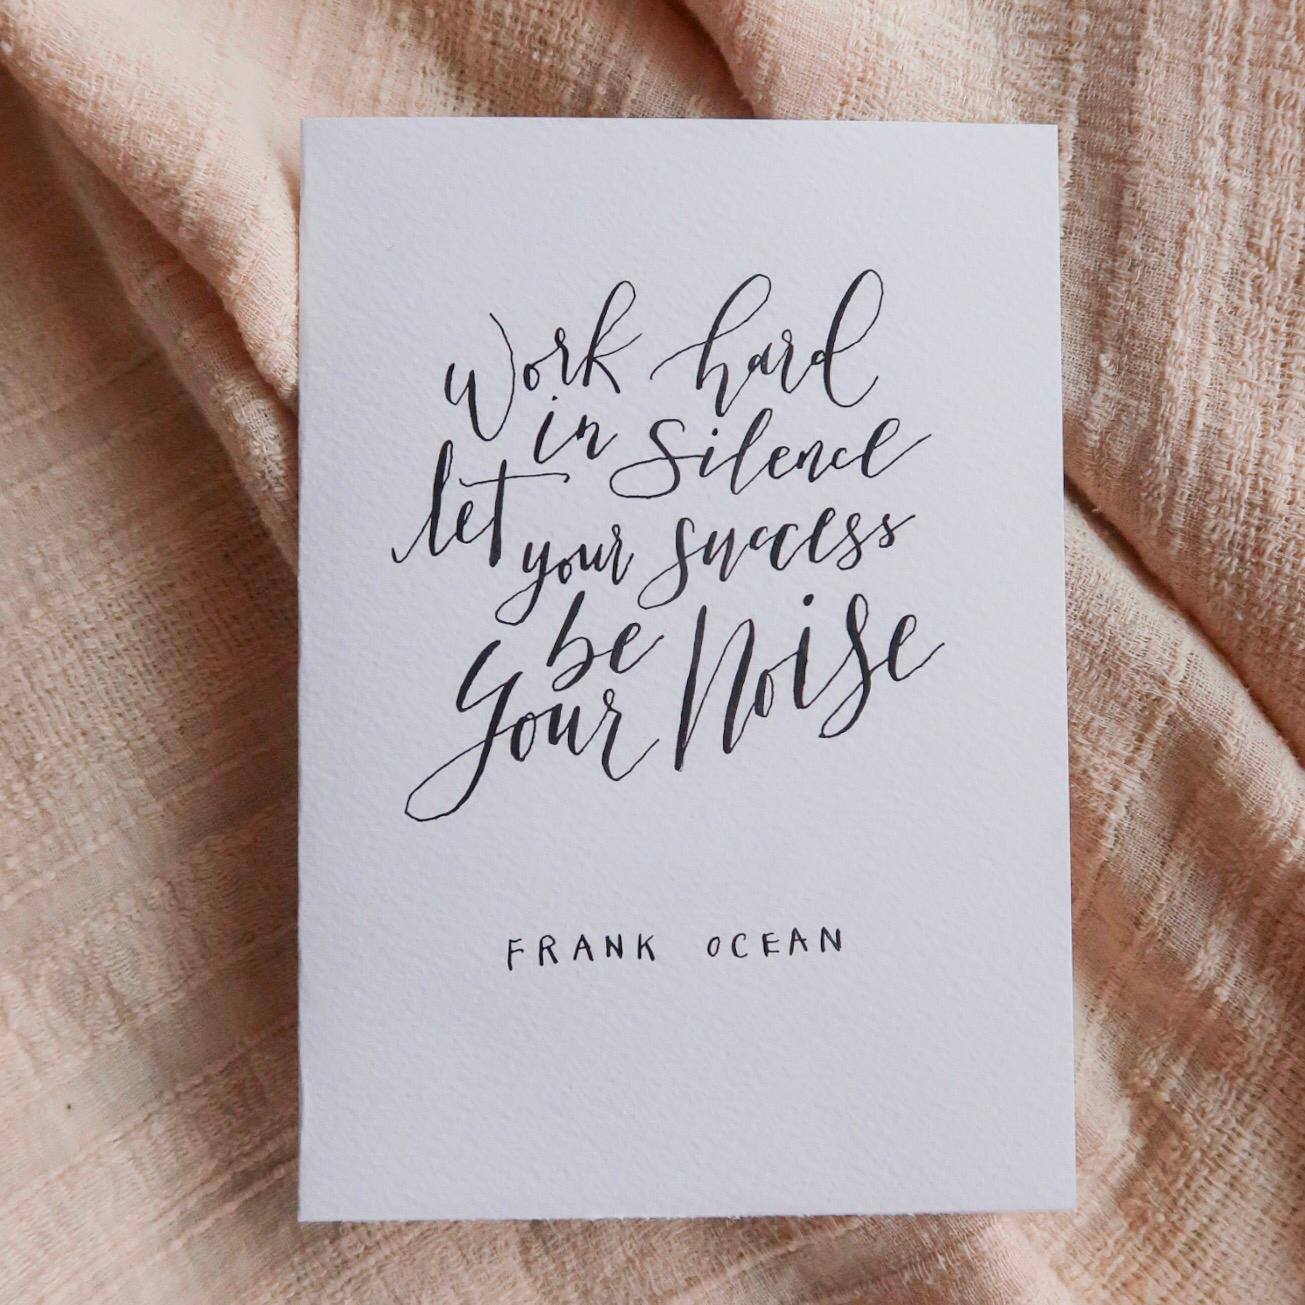 Work hard
in Silence
let your success
be
your Noise
FRANK OCEAN